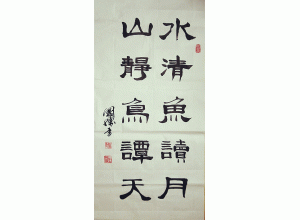 水清魚讀月
山靜鳥譚天